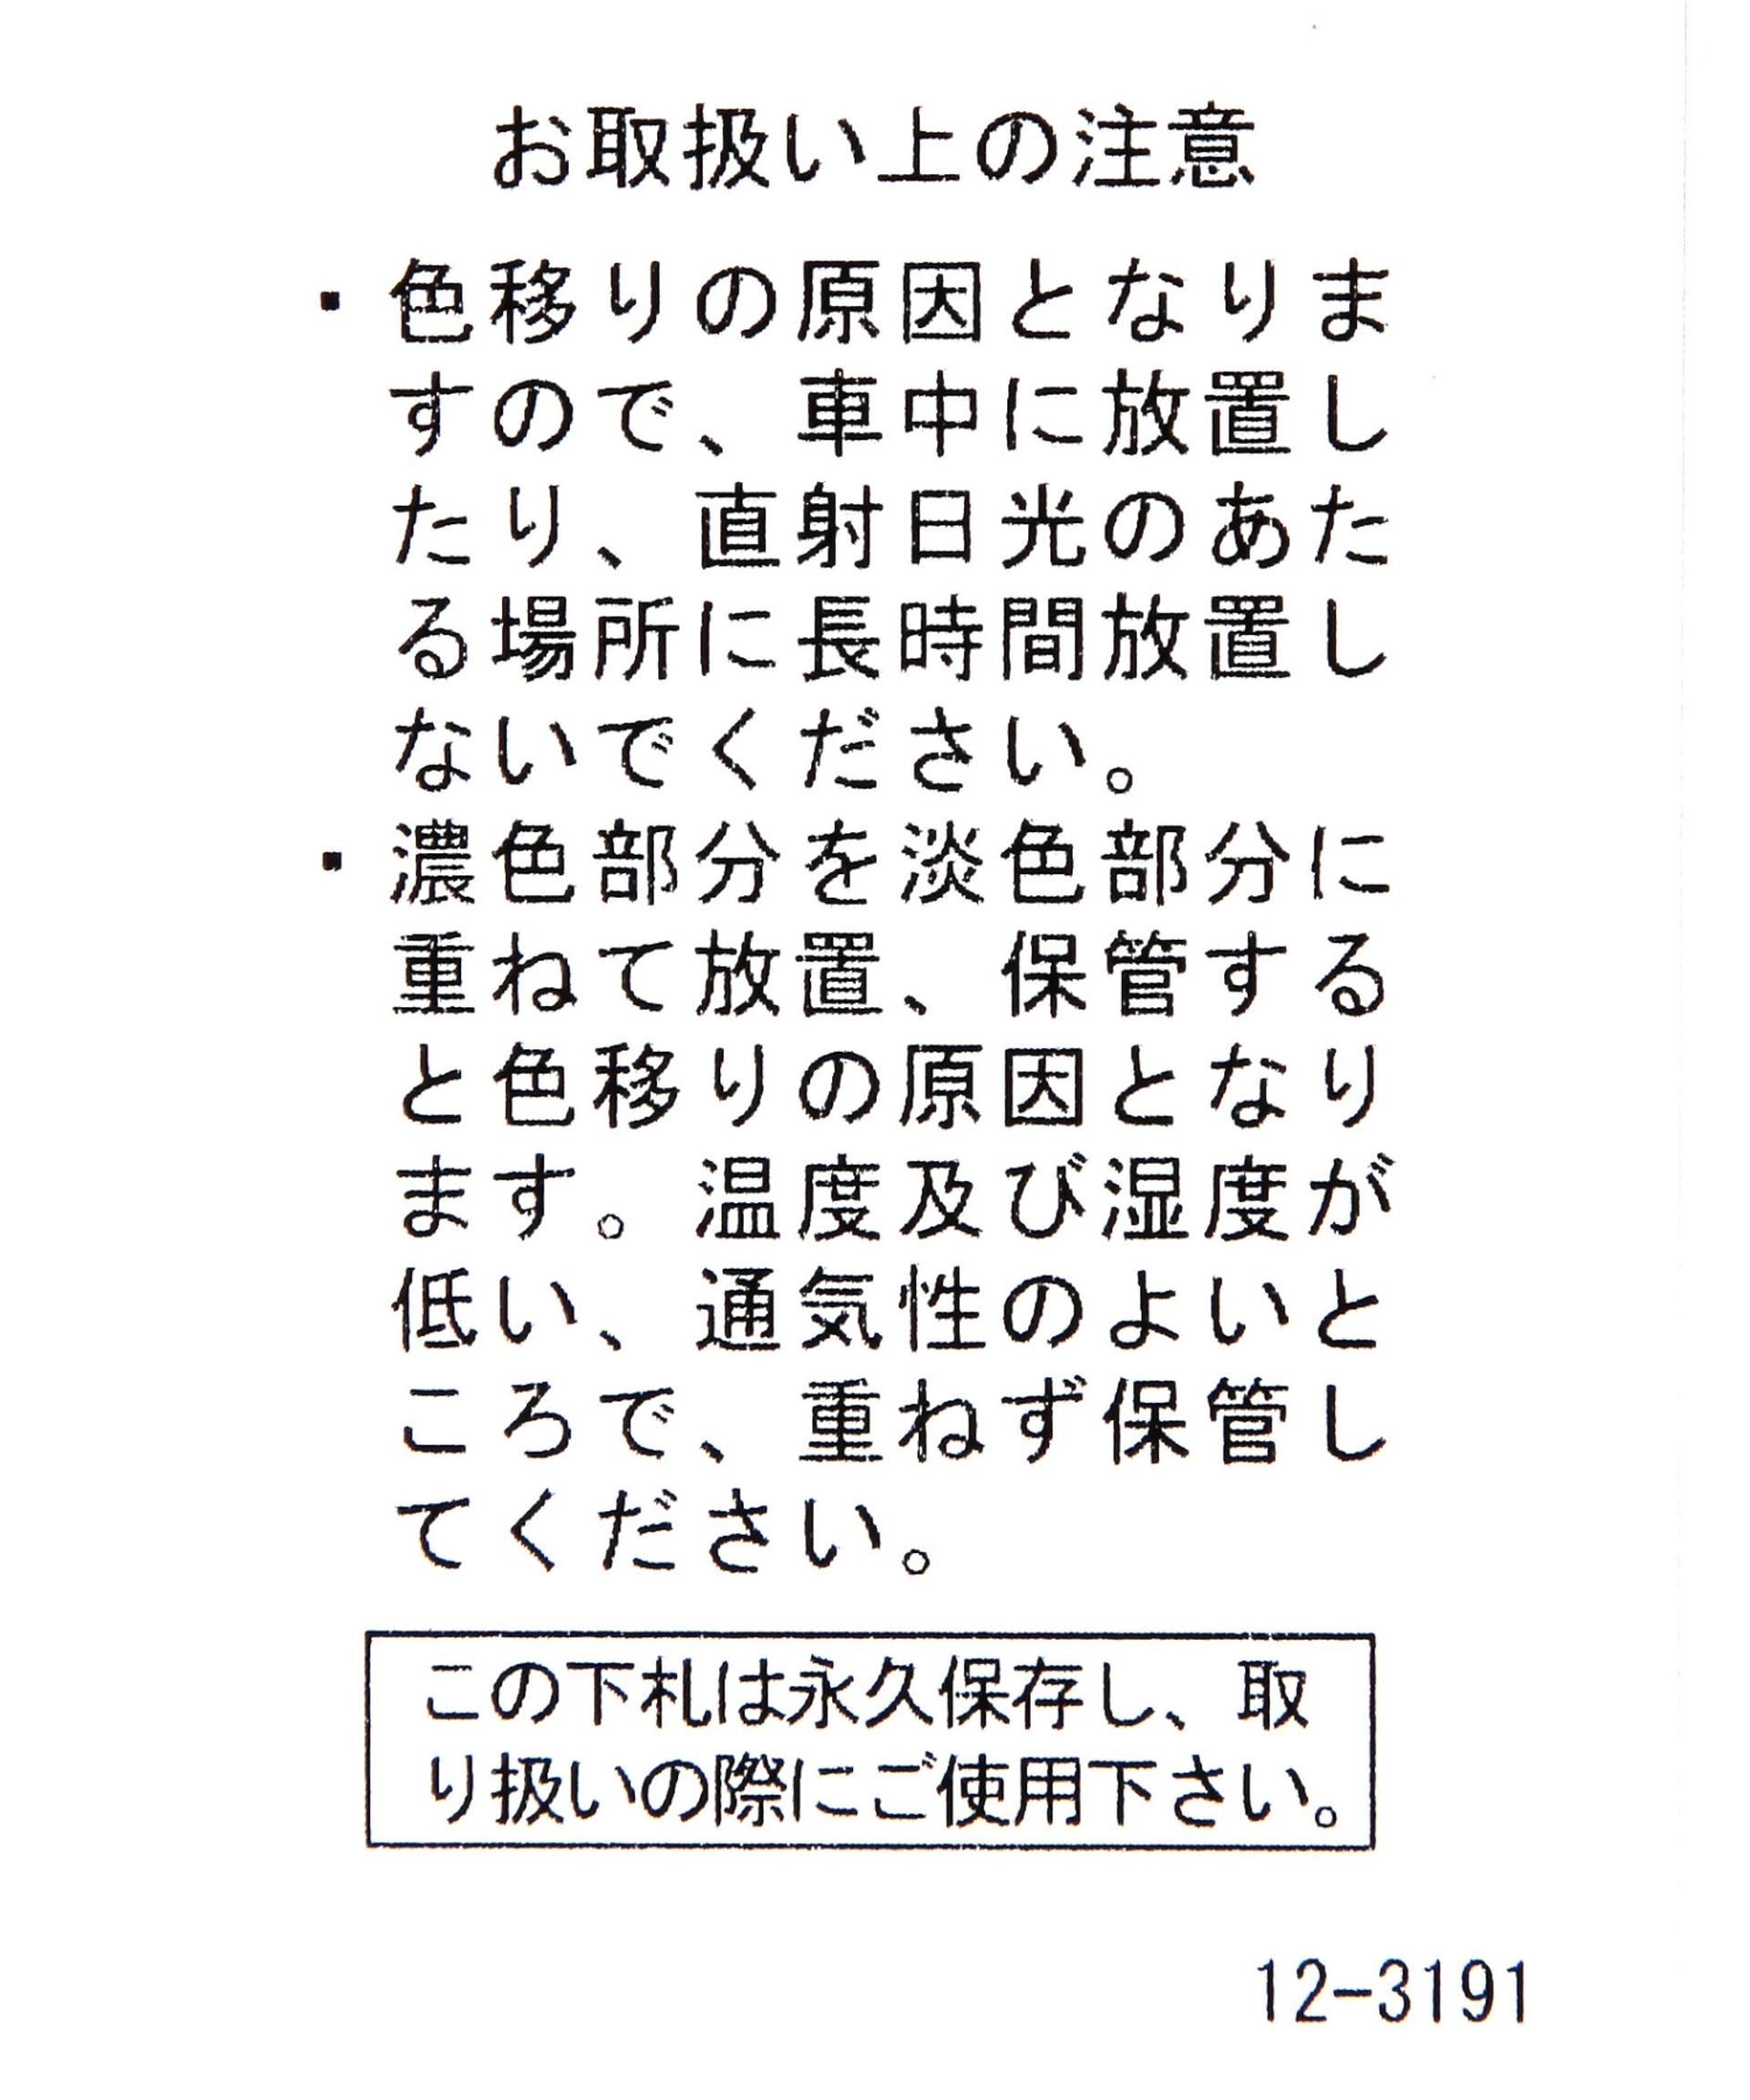 お取扱い上の注意
・色移りの原因となりま
すので、車中に放置し
たり、直射日光のあた
る場所に長時間放置し
ないでください。
・濃色部分を淡色部分に
重ねて放置、保管する
と色移りの原因となり
ます。温度及び湿度が
低い、通気性のよいと
ころで、重ねず保管し
てください。
この下札は永久保存し、取
り扱いの際にご使用下さい。
12-3191